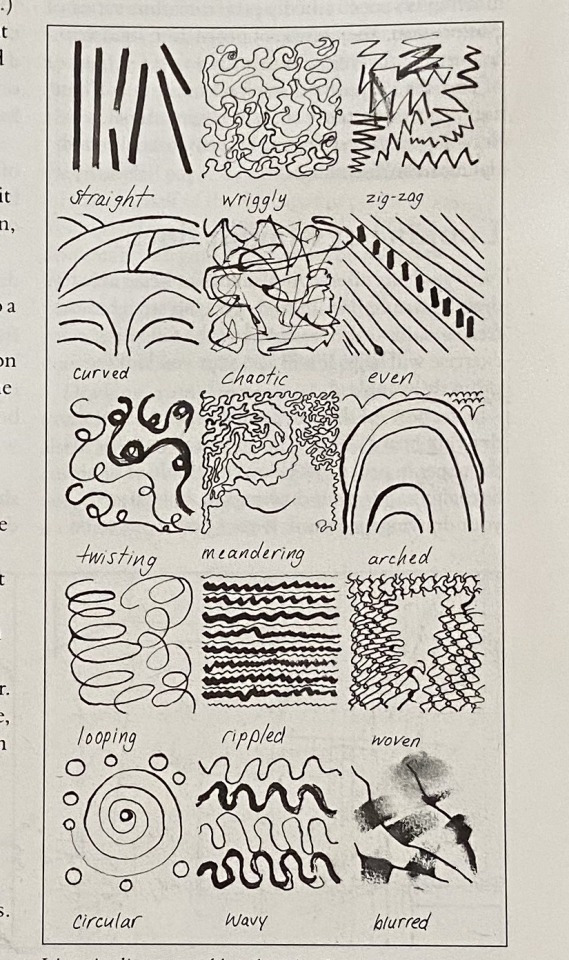 straight wriggly zig-zag
curved Chaotic even
twisting meandering arched
looping rippled woven
Circular Wavy blurred